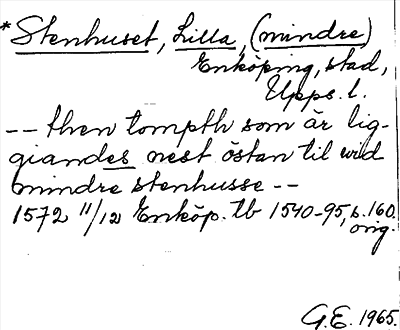 *Stenhuset, Lilla, (mindre)
Enköping, stad,
Upps. l.
-- then tompth som är lig-
giandes nest östan til wid
mindre stenhusse --
1572 11/12 Enköp. tb 1540-95, s. 160
orig.
G.E. 1965.